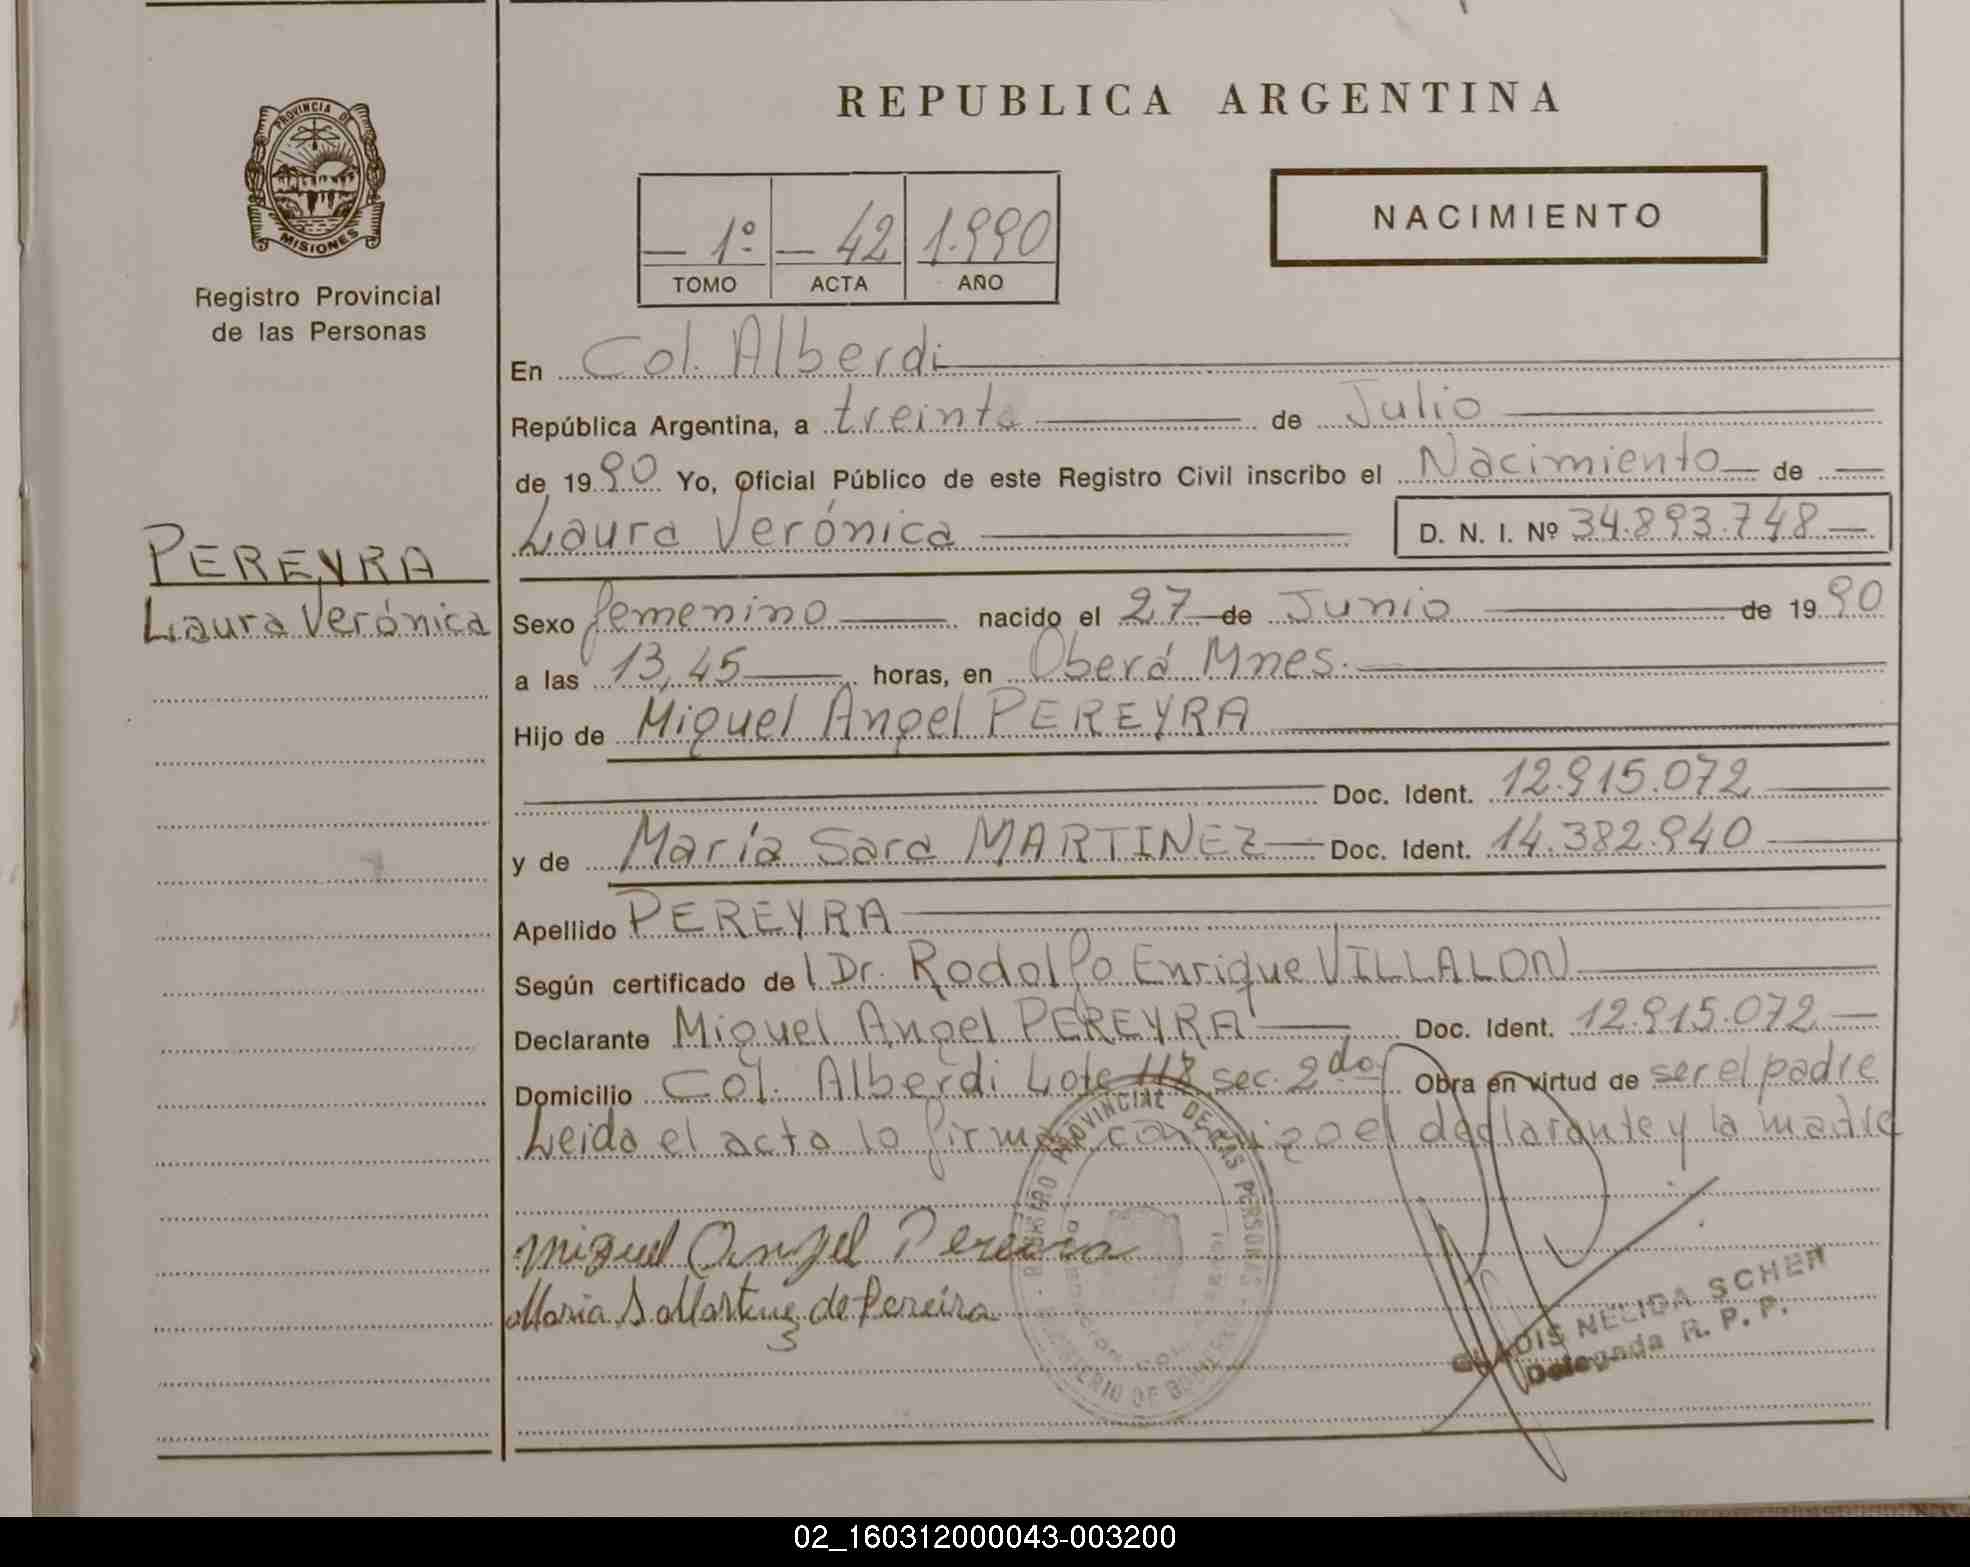 REPUBLICA ARGENTINA
PROVINCIA DE
MISIONES
Registro Provincial
de las Personas
— 1º — 42 1.990
TOMO ACTA AÑO
NACIMIENTO
En Col. Alberdi
República Argentina, a treinta de Julio
de 1990 Yo, Oficial Público de este Registro Civil inscribo el Nacimiento de
Laura Verónica D. N. I. Nº 34.893.748
PEREYRA
Laura Verónica
Sexo femenino nacido el 27 de Junio de 1990
a las 13,45 horas, en Oberá Mnes.
Hijo de Miguel Angel PEREYRA
Doc. Ident. 12.915.072
y de María Sara MARTINEZ Doc. Ident. 14.382.940
Apellido PEREYRA
Según certificado de l Dr. Rodolfo Enrique VILLALON
Declarante Miguel Angel PEREYRA Doc. Ident. 12.915.072
Domicilio Col. Alberdi Lote 118 sec. 2do Obra en virtud de ser el padre
Leida el acta lo firma conmigo el declarante y la madre
Miguel Angel Pereira
Maria S Martinez de Pereira
REGISTRO PROVINCIAL DE LAS PERSONAS
MINISTERIO DE GOBIERNO
GLADIS NELIDA SCHER
Delegada R. P. P.
02_160312000043-003200